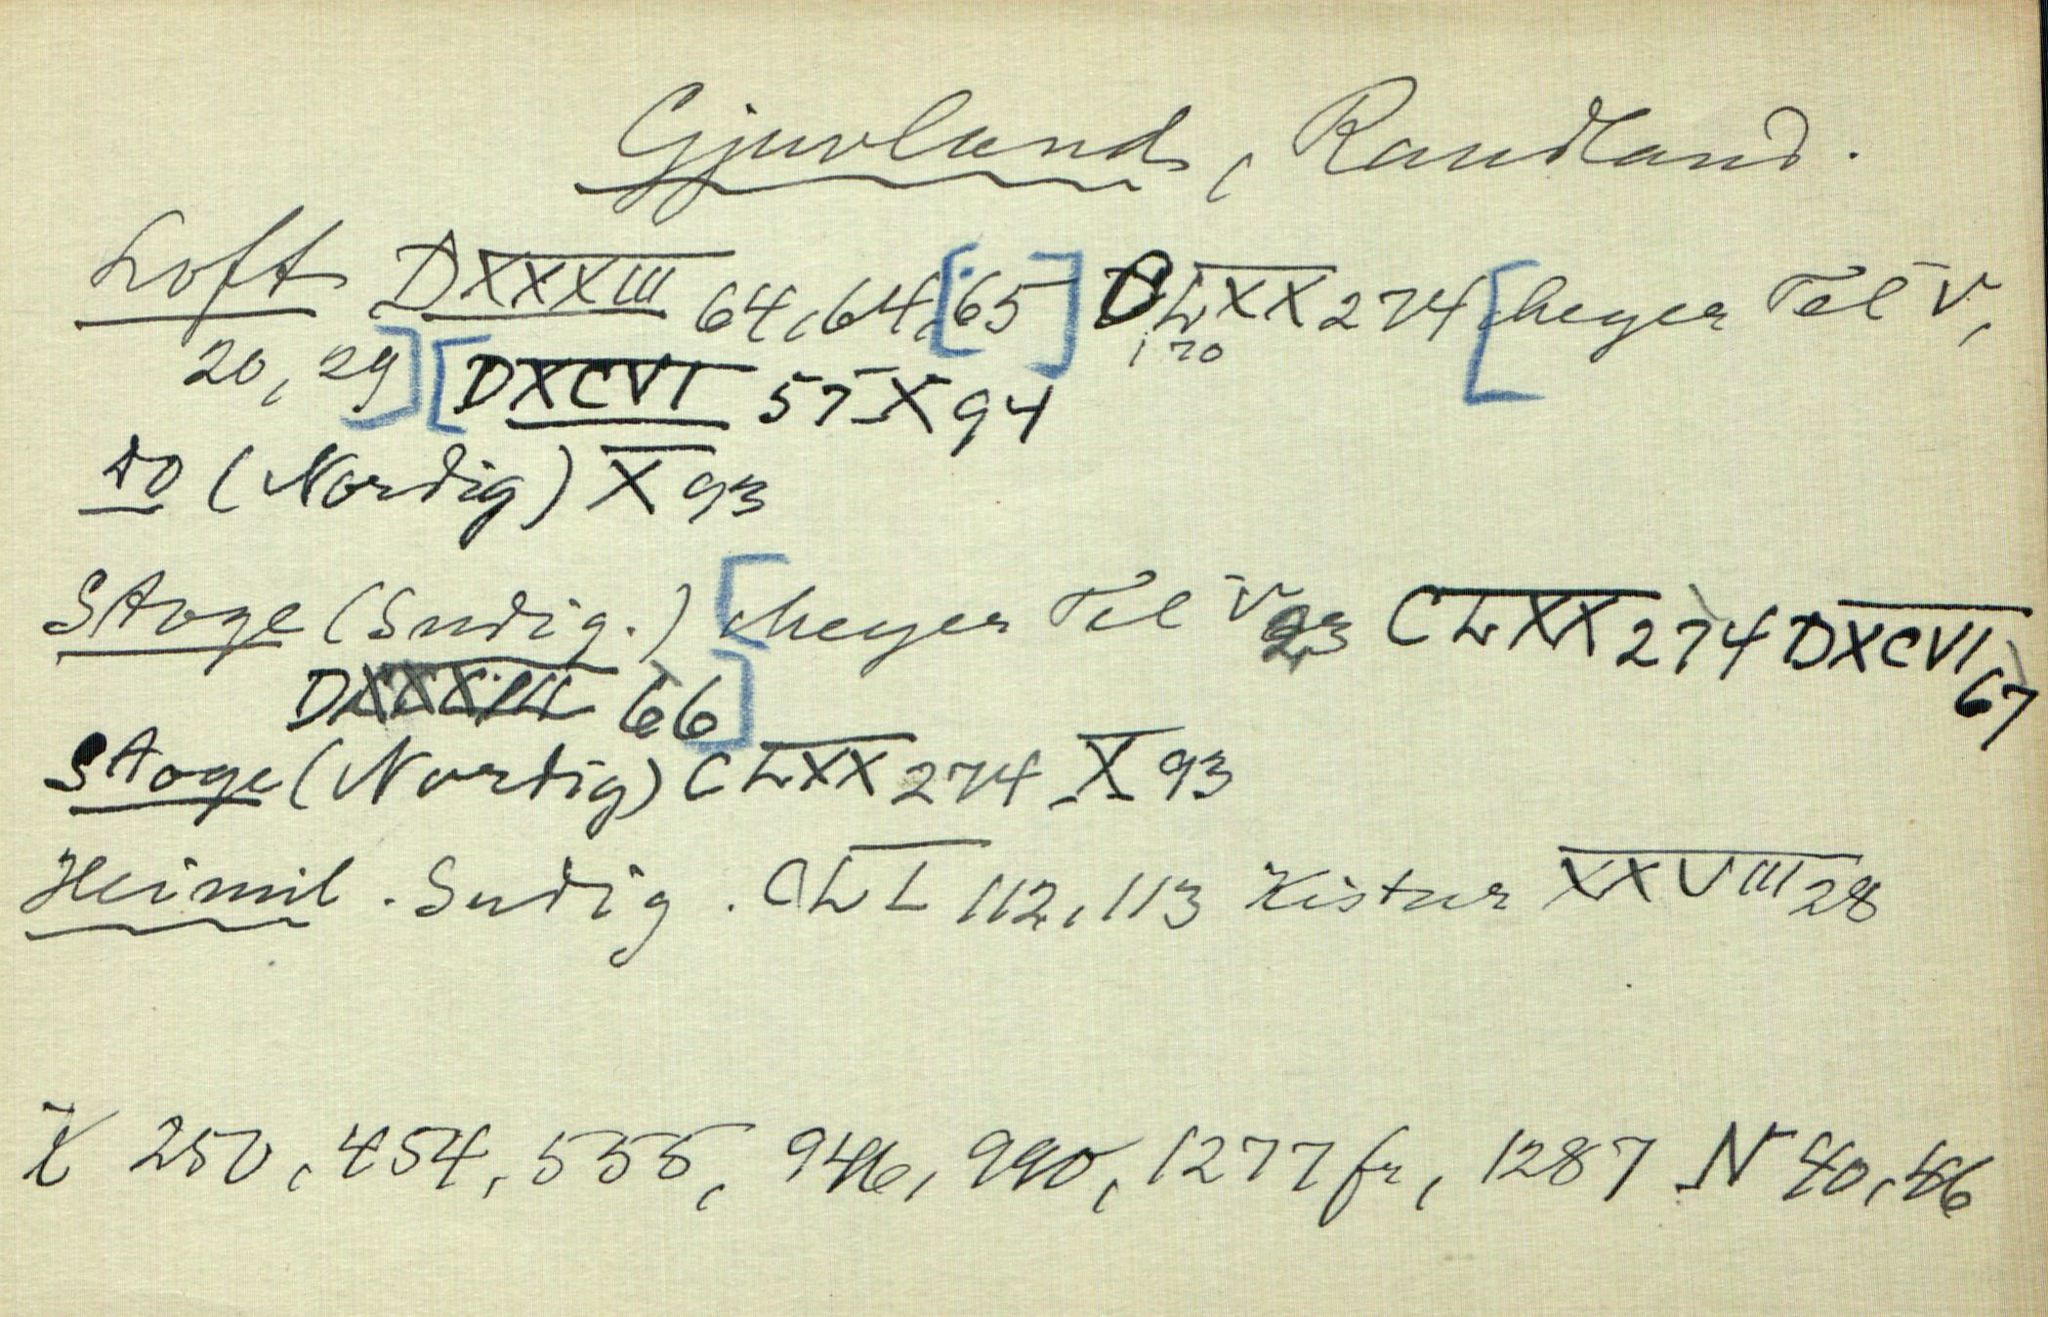 Gjuvland, Raudland.
Loft DXXXIII 64, 64, [65] CLXX 274 [Meyer Tel V,
, 70
20, 29] [DXCVI 57 X 94
do (Nordig) X 93
Stoge (Sudig.) [Meyer Tel V 23 CLXX 274 DXCVI, 67
66]
Stoge (Nordig) CLXX 274 X 93
Heimil. Sudig. CLI 112, 113 Kistur XXVIII 28
K 250, 454, 555, 946, 990, 1277 fr, 1287 N 40, 46